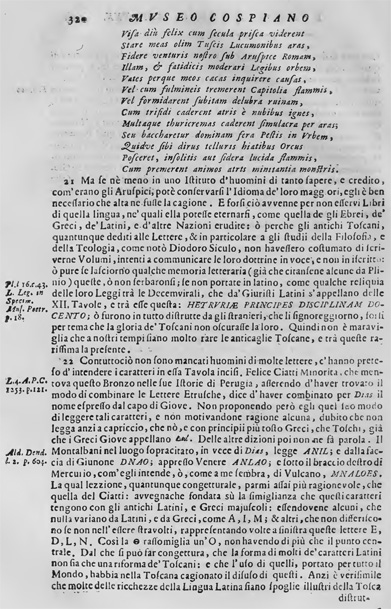 320 MVSEO COSPIANO
Visa diù felix cum secula prisca viderent
Stare meas olim Tuscis Lucumonibus aras,
Fidere venturis nostro sub Aruspice Romam,
Illam, & fatidicis moderari Legibus orbem,
Vates perque meos cacas inquirere causas,
Vel cum fulmineis tremerent Capitolia flammis,
Vel formidarent subitam delubra ruinam,
Cum trisidi caderent atris è nubibus ignes,
Multaque thuricremas caderent simulacra per aras;
Seu baccharetur dominam fera Pestis in Vrbem,
Quidve sibi dirus telluris hiatibus Orcus
Posceret, insolitis aut sidera lucida flammis,
Cum premerent animos atris minitantia monstris.
21 Ma se nè meno in uno Istituto d'huomini di tanto sapere, e credito,
com'erano gli Aruspici; potè conservarsi l'Idioma de' loro maggiori, egli è ben
necessario che alta ne fusse la cagione. E forsi ciò avvenne per non esservi Libri
di quella lingua, ne' quali ella potesse eternarsi, come quella de gli Ebrei, de'
Greci, de' Latini, e d'altre Nazioni erudite: ò perche gli antichi Toscani,
quantunque dediti alle Lettere, & in particolare a gli studii della Filosofia, e
della Teologia, come notò Diodoro Siculo, non havessero costumato di scri-
verne Volumi, intenti a communicare le loro dottrine in voce, e non in iscritto:
ò pure se lasciorno qualche memoria letteraria (già che citansene alcune da Pli-
Pl.l 16.c.43. nio) queste, ò non serbaronsi; se non portate in latino, come qualche reliquia
L. Lig. in delle loro Leggi trà le Decemvirali, che da' Giuristi Latini s'appellano delle
Specim. XII. Tavole, e trà esse questa: HETRVRIÆ PRINCIPES DISCIPLINAM DO-
Ant. Pettr. CENTO; ò furono in tutto distrutte da gli stranieri, che li signoreggiorno, forsi
p.18. per tema che la gloria de' Toscani non oscurasse la loro. Quindi non è maravi-
glia che a nostri tempi siano molto rare le anticaglie Toscane, e trà queste ra-
rissima la presente.
22 Contuttociò non sono mancati huomini di molte lettere, c'hanno prete-
so d'intendere i caratteri in essa Tavola incisi. Felice Ciatti Minorita, che men-
L.4. A.P.C. tova questo Bronzo nelle sue Istorie di Perugia, asserendo d'haver trovato il
1253.p.121. modo di combinare le Lettere Etrusche, dice d'haver combinato per Dias il
nome espresso dal capo di Giove. Non proponendo però egli quel suo modo
di leggere tali caratteri, e non motivandone ragione alcuna, dubito che non
legga anzi a capriccio, che nò, e con principii più tosto Greci, che Toschi, già
che i Greci Giove appellano Δια. Delle altre dizioni poi non ne fà parola. Il
Ald. Dend. Montalbani nel luogo sopracitato, in vece di Dias, legge ANIL; e dalla fac-
l. 2. p. 605. cia di Giunone DNAO; appresso Venere ANLAO; e sotto il braccio destro di
Mercurio, com'egli intende, ò, come a me sembra, di Vulcano,
La qual lezzione, quantunque congetturale, parmi assai più ragionevole, che
quella del Ciatti: avvegnache fondata sù la simiglianza che questi caratteri
tengono con gli antichi Latini, e Greci majuscoli: essendovene alcuni, che
nulla variano da Latini, e da Greci, come A, I, M; & altri, che non differisco-
no se non nell'essere stravolti, rappresentando volte a sinistra quelle lettere E,
D, L, N. Così la ⊙ rassomiglia un'O, non havendo di più che il punto cen-
trale. Dal che si può far congettura, che la forma di molti de' caratteri Latini
non sia che una riforma de' Toscani: e che l'uso di quelli, portato per tutto il
Mondo, habbia nella Toscana cagionato il disuso di questi. Anzi è verisimile
che molte delle ricchezze della Lingua Latina siano spoglie illustri della Tosca
distrut-